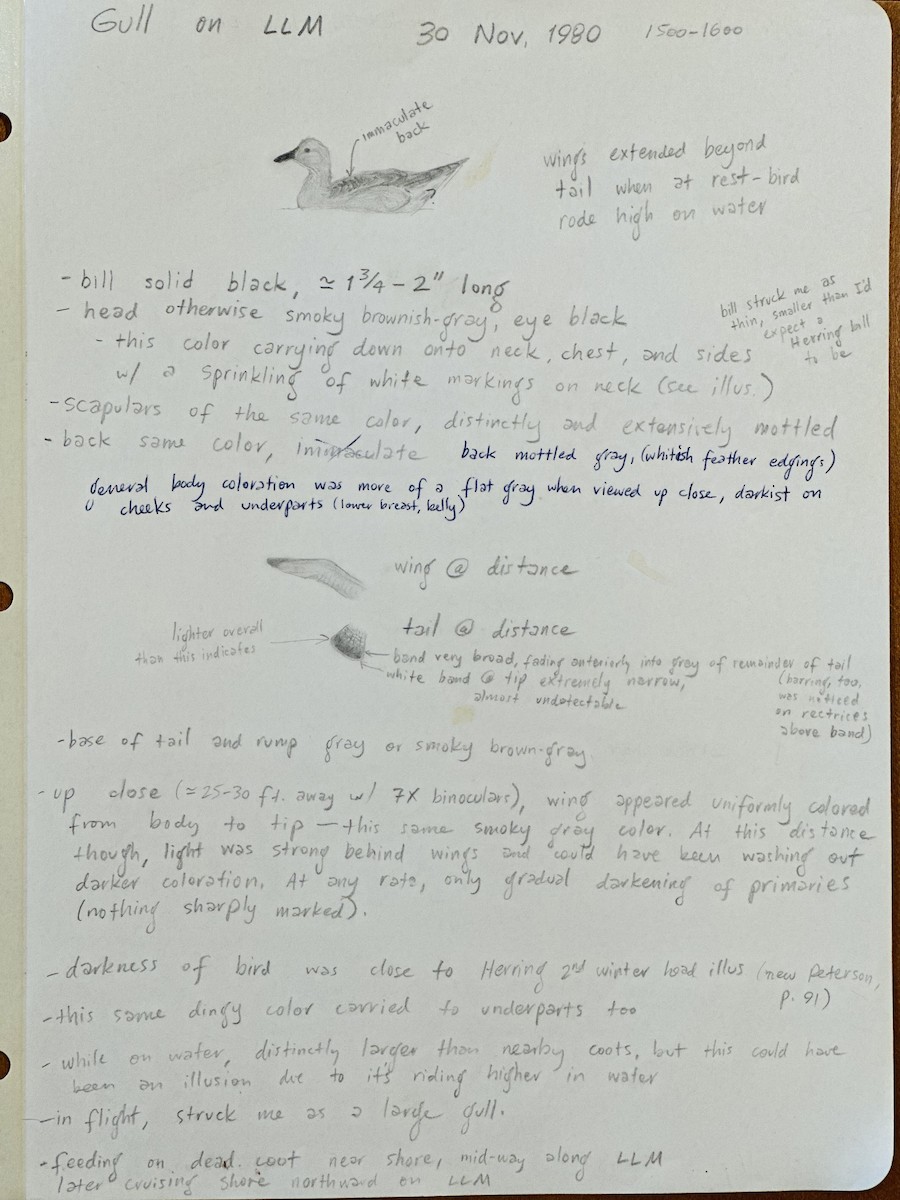 Gull on LLM 30 Nov, 1980 1500-1600
immaculate
back
wings extended beyond
tail when at rest - bird
rode high on water
?
- bill solid black, ≃ 1 3/4 - 2" long
- head otherwise smoky brownish-gray, eye black
bill struck me as
thin, smaller than I'd
expect a
Herring bill
to be
- this color carrying down onto neck, chest, and sides
w/ a sprinkling of white markings on neck (see illus.)
- scapulars of the same color, distinctly and extensively mottled
- back same color, immaculate back mottled gray, (whitish feather edgings)
General body coloration was more of a flat gray when viewed up close, darkist on
cheeks and underparts (lower breast, belly)
wing @ distance
tail @ distance
lighter overall
than this indicates
band very broad, fading anteriorly into gray of remainder of tail
white band @ tip extremely narrow,
almost undetectable
(barring, too,
was noticed
on rectrices
above band)
- base of tail and rump gray or smoky brown-gray.
- up close (≃ 25-30 ft. away w/ 7X binoculars), wing appeared uniformly colored
from body to tip — this same smoky gray color. At this distance
though, light was strong behind wings and could have been washing out
darker coloration. At any rate, only gradual darkening of primaries
(nothing sharply marked).
- darkness of bird was close to Herring 2nd winter head illus (new Peterson,
p. 91)
- this same dingy color carried to underparts too
- while on water, distinctly larger than nearby coots, but this could have
been an illusion due to it's riding higher in water
- in flight, struck me as a large gull.
- feeding on dead coot near shore, mid-way along LLM
later cruising shore northward on LLM